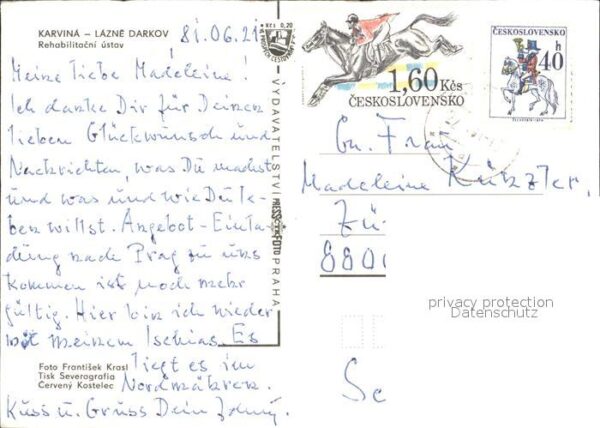 KARVINÁ – LÁZNĚ DARKOV
Rehabilitační ústav
81.06.21
Kčs 0,20
Meine liebe Madeleine!
Ich danke Dir für Deinen
lieben Glückwunsch und
Nachrichten, was Du machst
und was und wie Du le-
ben willst. Angebot-Einla-
dung nach Prag zu uns
kommen ist noch mehr
gültig. Hier bin ich wieder
mit meinem Ischias. Es
liegt es im
Nordmähren.
Kuss u. Gruss Dein
Foto František Krasl
Tisk Severografia
Červený Kostelec
VYDAVATELSTVÍ PRESSFOTO PRAHA
1,60 Kčs
ČESKOSLOVENSKO
ČESKOSLOVENSKO
40 h
Gn. Frau
Madeleine Künzler,
Zü-
880
privacy protection
Datenschutz
Sc